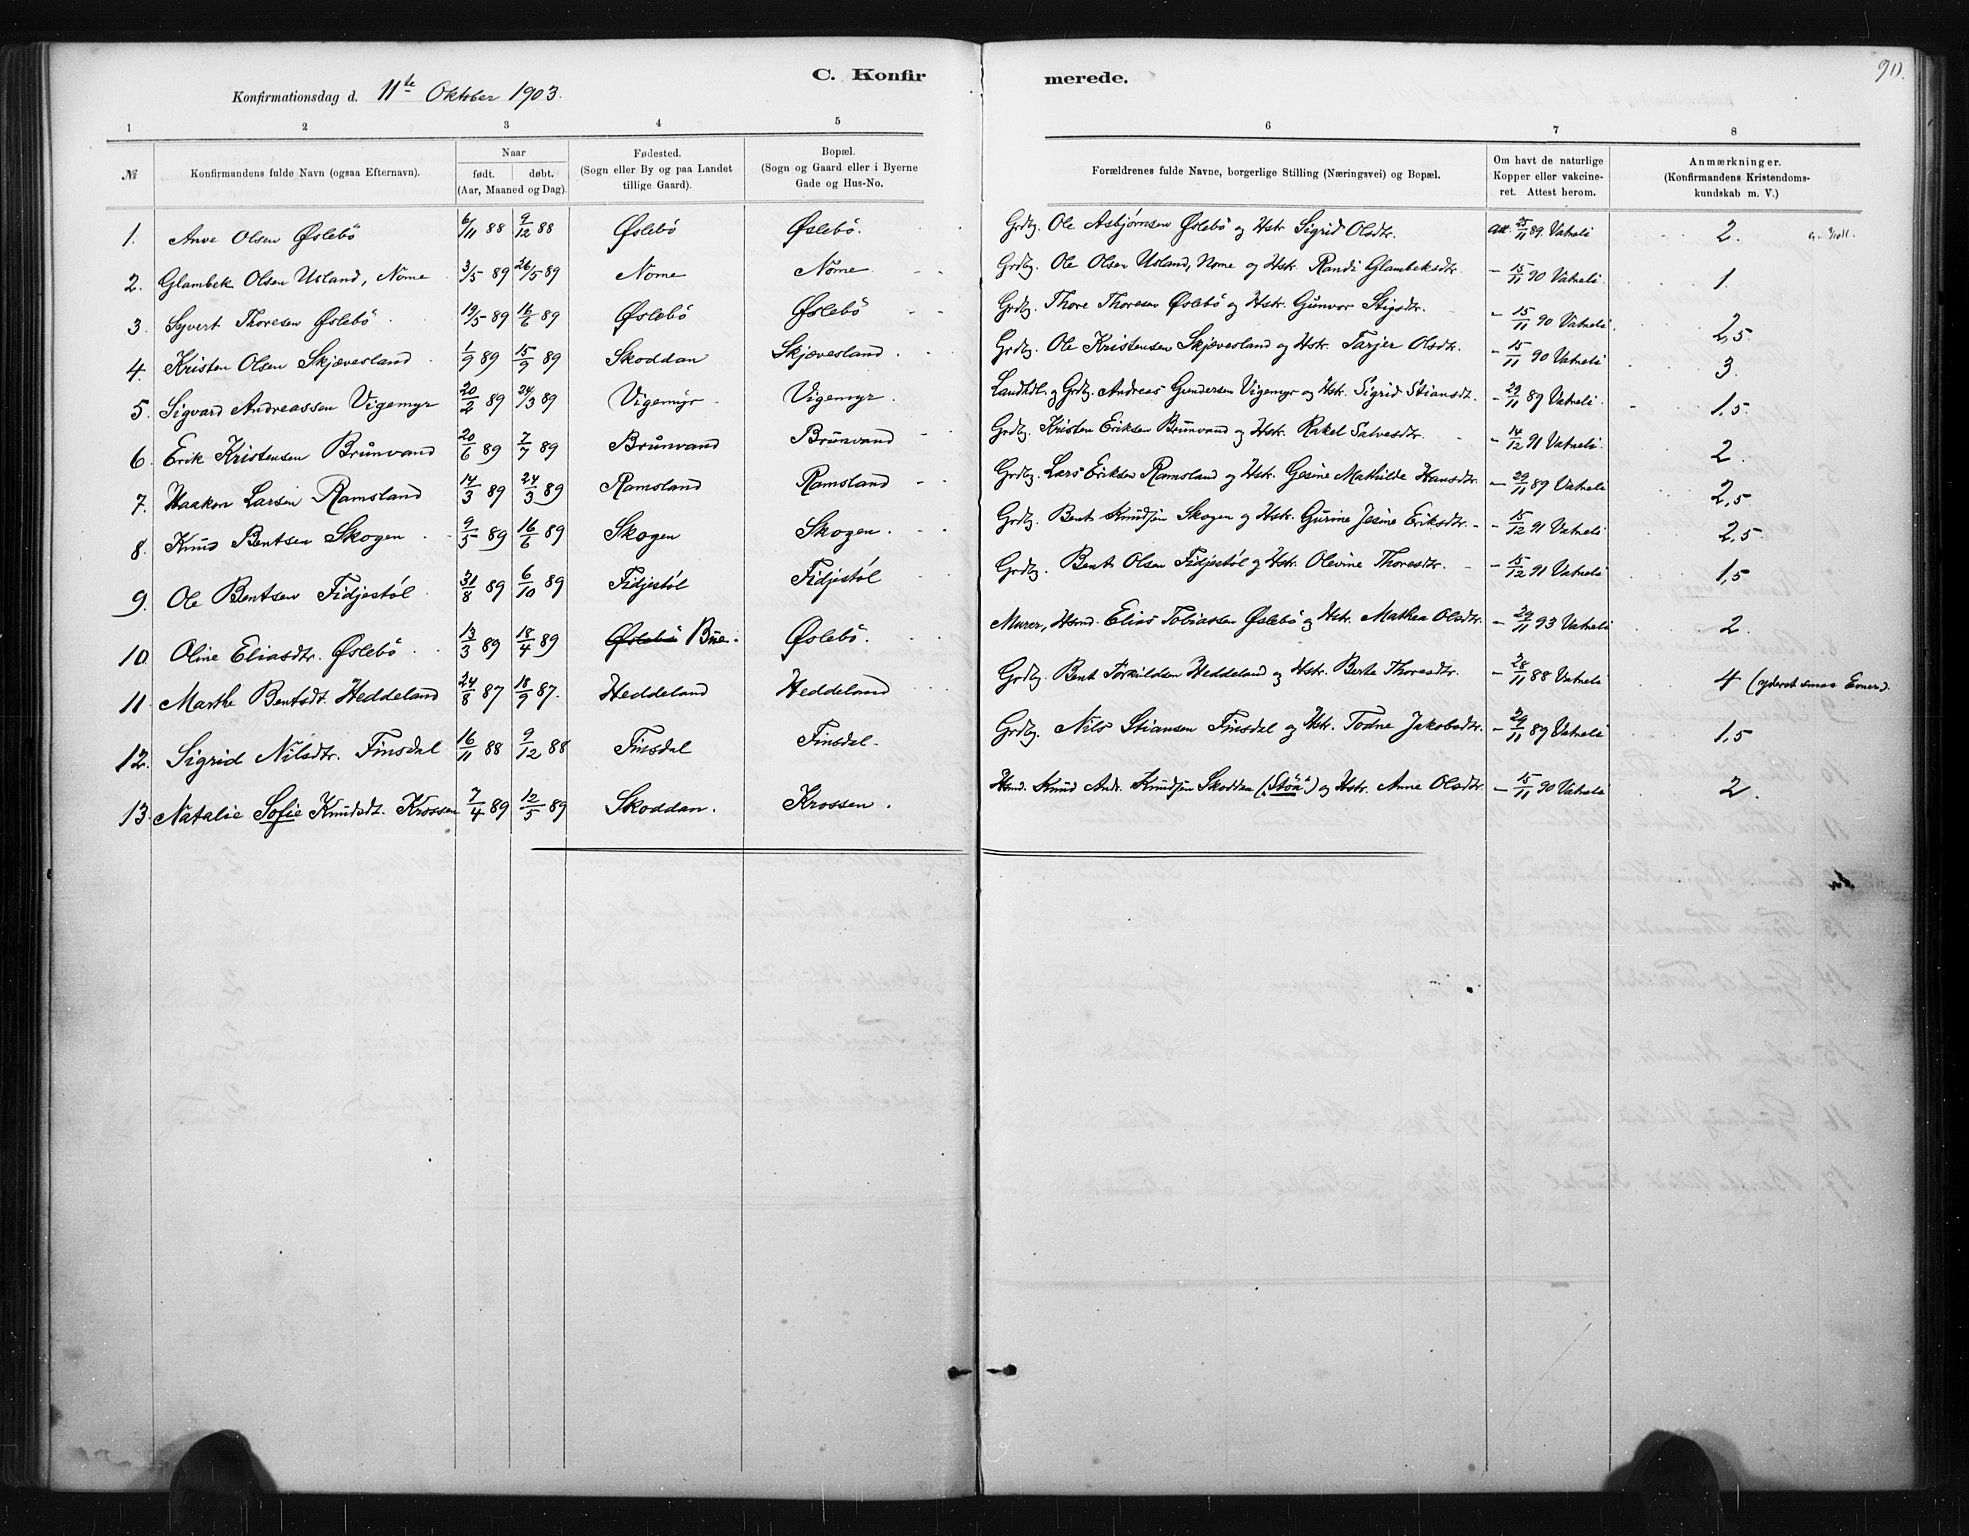 C. Konfirmerede.
90.
Konfirmationsdag d. 11te Oktober 1903.
1 2 3 4 5 6 7 8
№ Konfirmandens fulde Navn (ogsaa Efternavn). Naar født. døbt. (Aar, Maaned og Dag). Fødested. (Sogn eller By og paa Landet tillige Gaard). Bopæl. (Sogn og Gaard eller i Byerne Gade og Hus-No. Forældrenes fulde Navne, borgerlige Stilling (Næringsvei) og Bopæl. Om havt de naturlige Kopper eller vakcineret. Attest herom. Anmærkninger. (Konfirmandens Kristendomskundskab m. V.)
1. Anve Olsen Øslebö 6/11 88 9/12 88 Øslebö Øslebö. Grdbg. Ole Asbjørnsen Øslebö og Hstr. Sigrid Olsdtr. att. 25/11 89. Vatneli 2.
2. Glambek Olsen Usland, Nome 3/5 89 26/5 89 Nome Nome Grdbg. Ole Olsen Usland, Nome og Hstr. Randi Glambeksdtr. - 15/11 90 Vatneli 1
3. Syvert Thoresen Øslebö 19/5 89 16/6 89 Øslebö Øslebö Grdbg. Thore Thoresen Øslebö og Hstr. Gunvor Stigsdtr. - 15/11 90 Vatneli. 2,5.
4. Kristen Olsen Skjævesland 1/9 89 15/9 89 Skoddan Skjævesland. Grdbg. Ole Kristensen Skjævesland og Hstr. Tarjer Olsdtr. - 15/11 90 Vatneli 3.
5. Sigvard Andreassen Vigemyr 20/2 89 24/3 89 Vigemyr Vigemyr. Landhdl. og Grdbg. Andreas Gundersen Vigemyr og Hstr. Sigrid Stiansdt. - 29/11 89 Vatneli. 1,5.
6. Erik Kristensen Brünvand 20/6 89 7/7 89 Brünvand Brünvand Grdbg. Kristen Eriksen Brünvand og Hstr. Rakel Salvesdtr. - 14/12 91 Vatneli 2.
7. Haakon Larsen Ramsland 14/3 89 24/3 89 Ramsland Ramsland Grdbg. Lars Eriksen Ramsland og Hstr. Gesine Mathilde Hansdtr. - 29/11 89 Vatneli 2,5
8. Knud Bentsen Skogen 9/5 89 16/6 89 Skogen Skogen. Grdbg. Bent Knudsen Skogen og Hstr. Gurine Jesine Eriksdtr. - 15/12 91 Vatneli 2,5
9. Ole Bentsen Fidjestöl 31/8 89 6/10 89 Fidjestöl Fidjestöl Grdbg. Bent Olsen Fidjestöl og Hstr. Olevine Thoresdtr. - 15/12 91 Vatneli 1,5
10. Oline Eliasdtr. Øslebö 13/3 89 18/4 89 Øslebö Büe. Øslebö. Murer, Hsmd. Elias Tobiassen Øslebö og Hstr. Mathea Olsdtr. - 29/11 93 Vatneli 2.
11. Marthe Bentsdt. Heddeland 24/8 87 18/9 87. Heddeland Heddeland Grdbg. Bent Torkildsen Heddeland og Hstr. Berte Thoresdtr. - 28/11 88 Vatneli 4 (yderst smaa Evner).
12. Sigrid Nilsdtr. Finsdal 16/11 88 9/12 88 Finsdal Finsdal. Grdbg. Nils Stiansen Finsdal og Hstr. Todne Jakobsdtr. - 29/11 89 Vatneli 1,5
13. Natalie Sofie Knudsdt. Krossen 7/4 89 12/5 89 Skoddan. Krossen. Hsmd. Knud Andr. Knudsen Skoddan („Stöa“) og Hstr. Anne Olsdtr. - 15/11 90 Vatneli 2.